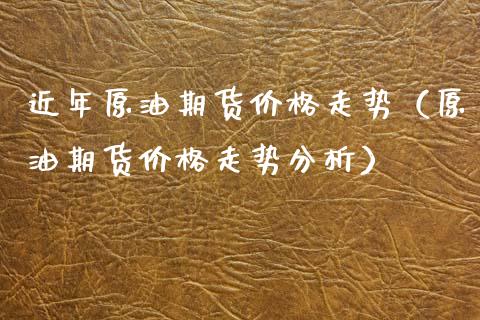 近年原油期货价格走势（原
油期货价格走势分析）